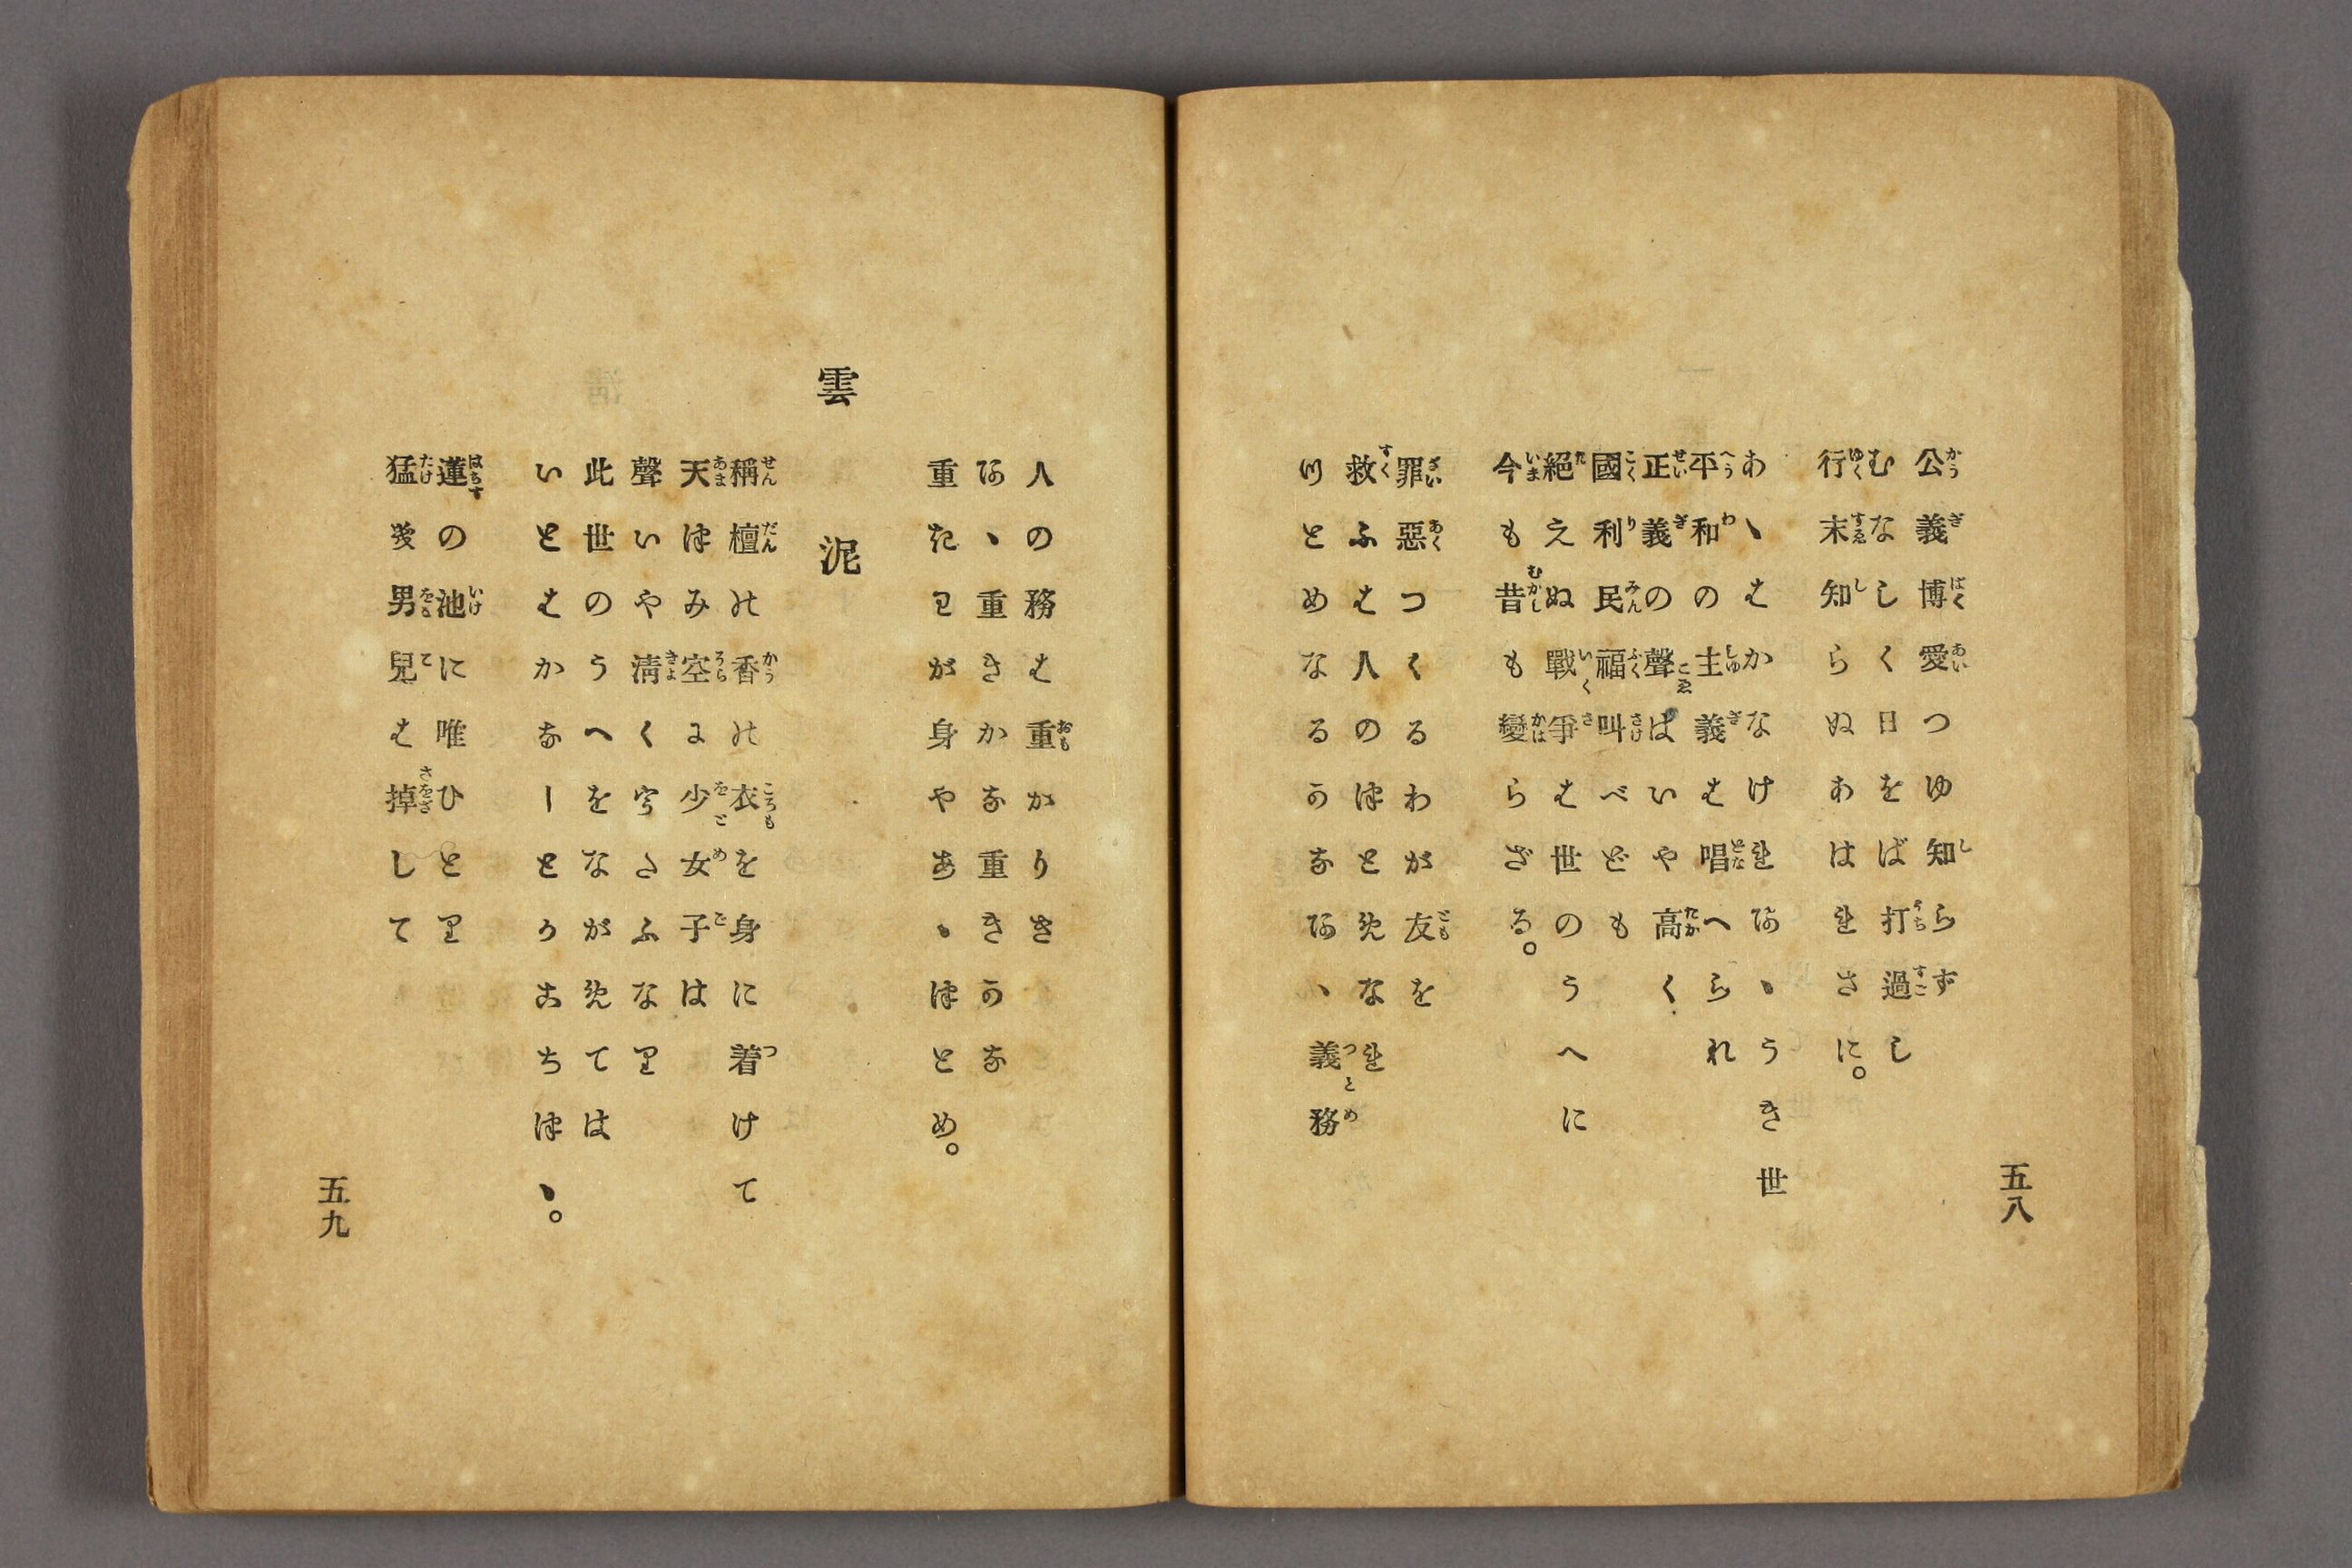 公義博愛つゆ知らず
むなしく日をば打過し
行末知らぬあはれさに。
あゝはかなけれあゝうき世
平和の主義は唱へられ
正義の聲はいや高く
國利民福叫べども
絕えぬ戰爭は世のうへに
今も昔も變らざる。
罪惡つくるわが友を
救ふは人のつとめなれ
つとめなるかなあゝ義務
五八
人の務は重かりき
あゝ重きかな重きかな
重きわが身やあゝつとめ。
雲泥
稱檀の香の衣を身に着けて
天つみ空に少女子は
聲いや淸くうたふなり
此世のうへをながめては
いとはかなしとかこちつゝ。
蓮の池に唯ひとり
猛き男兒は掉して
五九